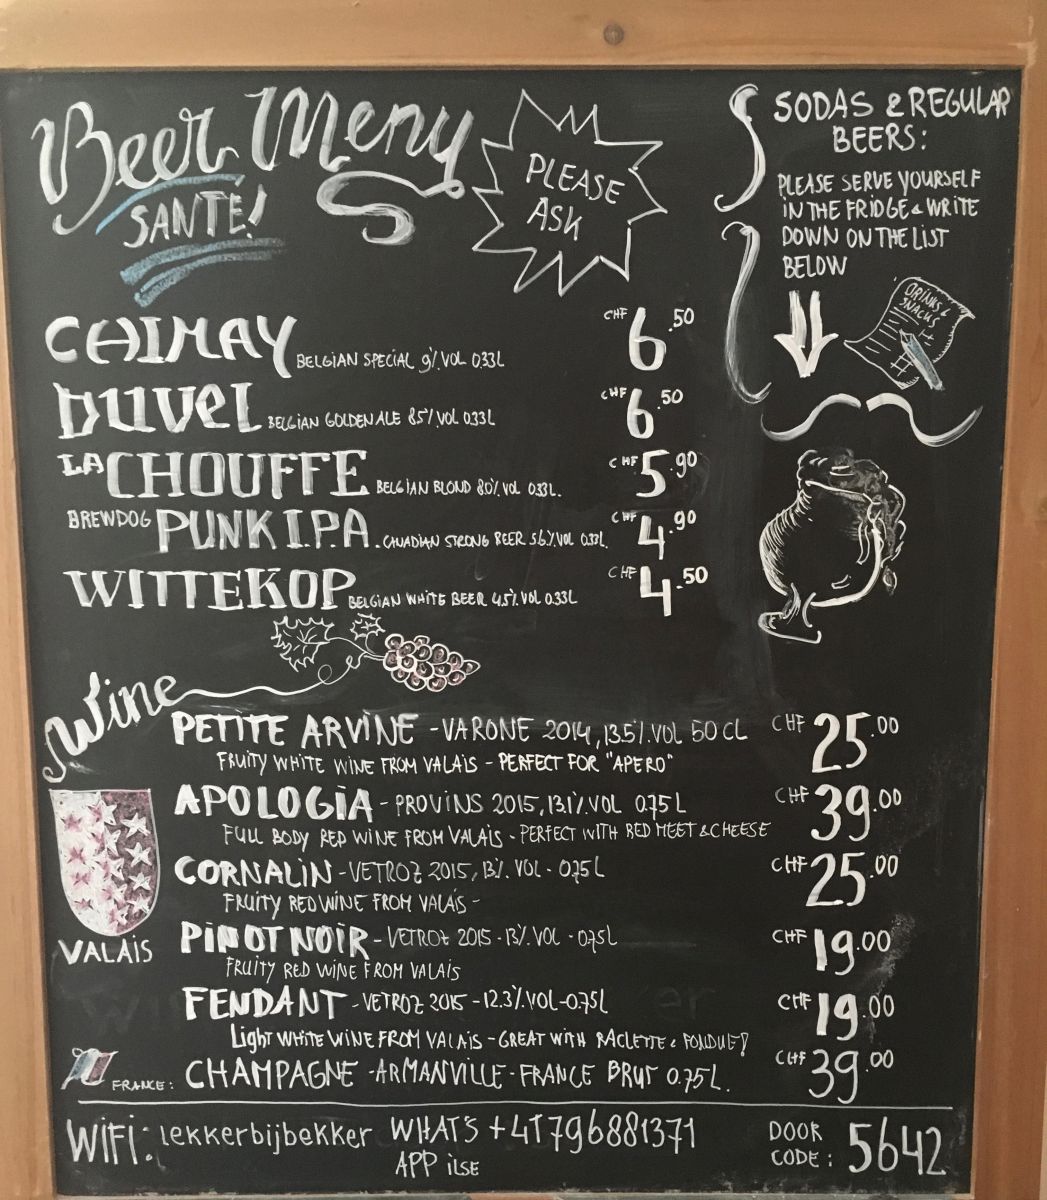 Beer Meny
SANTÉ!
PLEASE
ASK
SODAS & REGULAR
BEERS:
PLEASE SERVE YOURSELF
IN THE FRIDGE & WRITE
DOWN ON THE LIST
BELOW
DRINKS &
SNACKS
CHIMAY BELGIAN SPECIAL 9% VOL 0.33L CHF 6.50
DUVEL BELGIAN GOLDEN ALE 8.5% VOL 0.33L CHF 6.50
LA CHOUFFE BELGIAN BLOND 8.0% VOL 0.33L. CHF 5.90
BREWDOG PUNK I.P.A. CANADIAN STRONG BEER 5.6% VOL 0.33L. CHF 4.90
WITTEKOP BELGIAN WHITE BEER 4.5% VOL 0.33L CHF 4.50
Wine
PETITE ARVINE - VARONE 2014, 13.5% VOL 50 CL CHF 25.00
FRUITY WHITE WINE FROM VALAIS - PERFECT FOR "APERO"
APOLOGIA - PROVINS 2015, 13.1% VOL 0.75 L CHF 39.00
FULL BODY RED WINE FROM VALAIS - PERFECT WITH RED MEET & CHEESE
CORNALIN - VETROZ 2015, 13% VOL - 0.75 L CHF 25.00
FRUITY RED WINE FROM VALAIS -
VALAIS
PINOT NOIR - VETROZ 2015 - 13% VOL - 0.75L CHF 19.00
FRUITY RED WINE FROM VALAIS
FENDANT - VETROZ 2015 - 12.3% VOL - 0.75L CHF 19.00
Light WHITE WINE FROM VALAIS - GREAT WITH RACLETTE & FONDUE!
FRANCE: CHAMPAGNE - ARMANVILLE - FRANCE BRUT 0.75L. CHF 39.00
WIFI: Lekkerbijbekker WHAT'S +41796881371
APP ILSE
DOOR
CODE: 5642